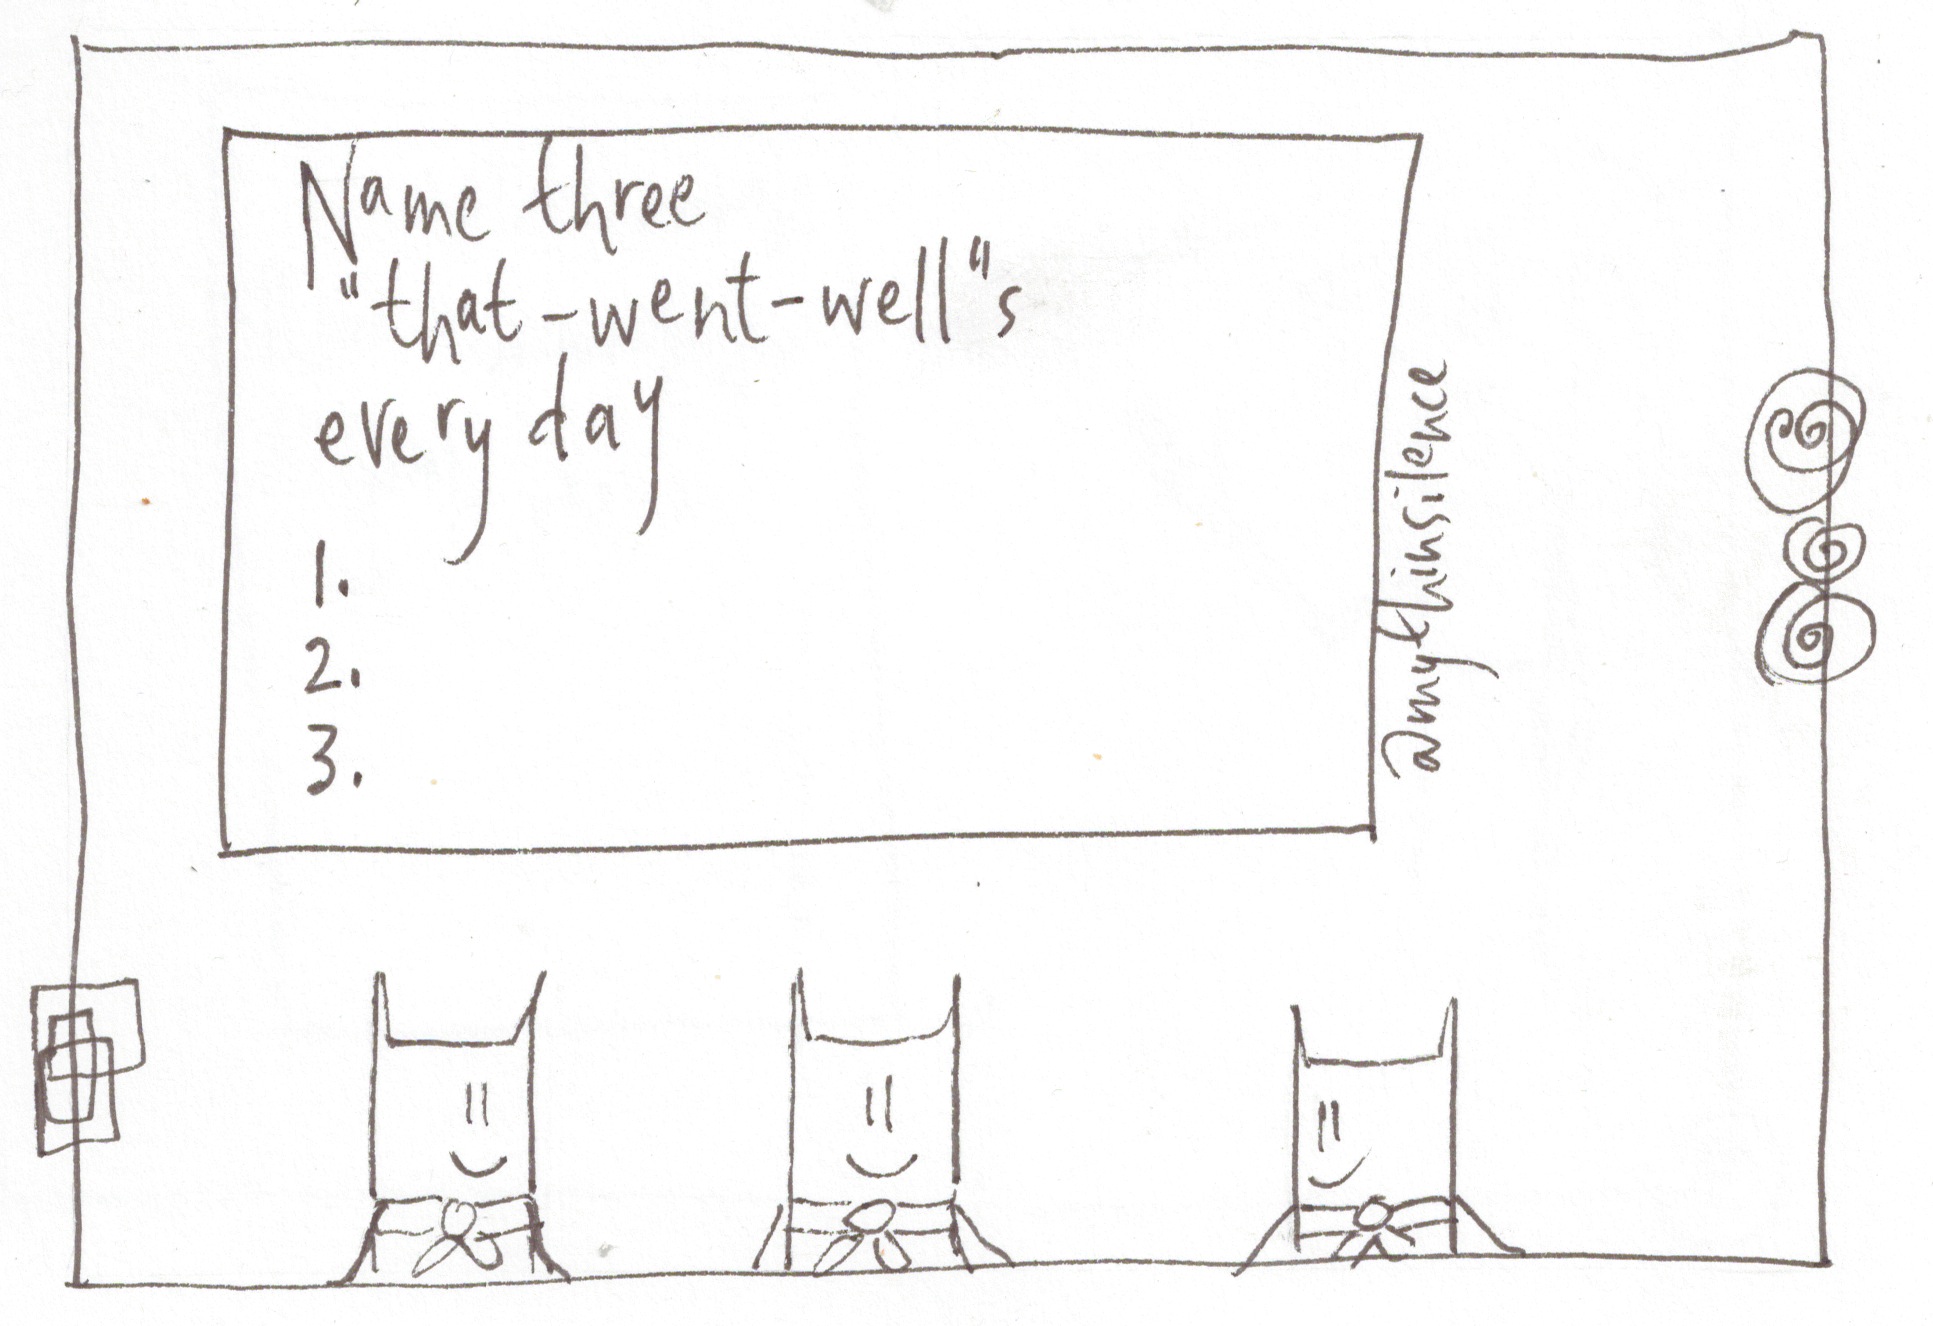 Name three
"that-went-well"s
every day
1.
2.
3.
amythinsilence